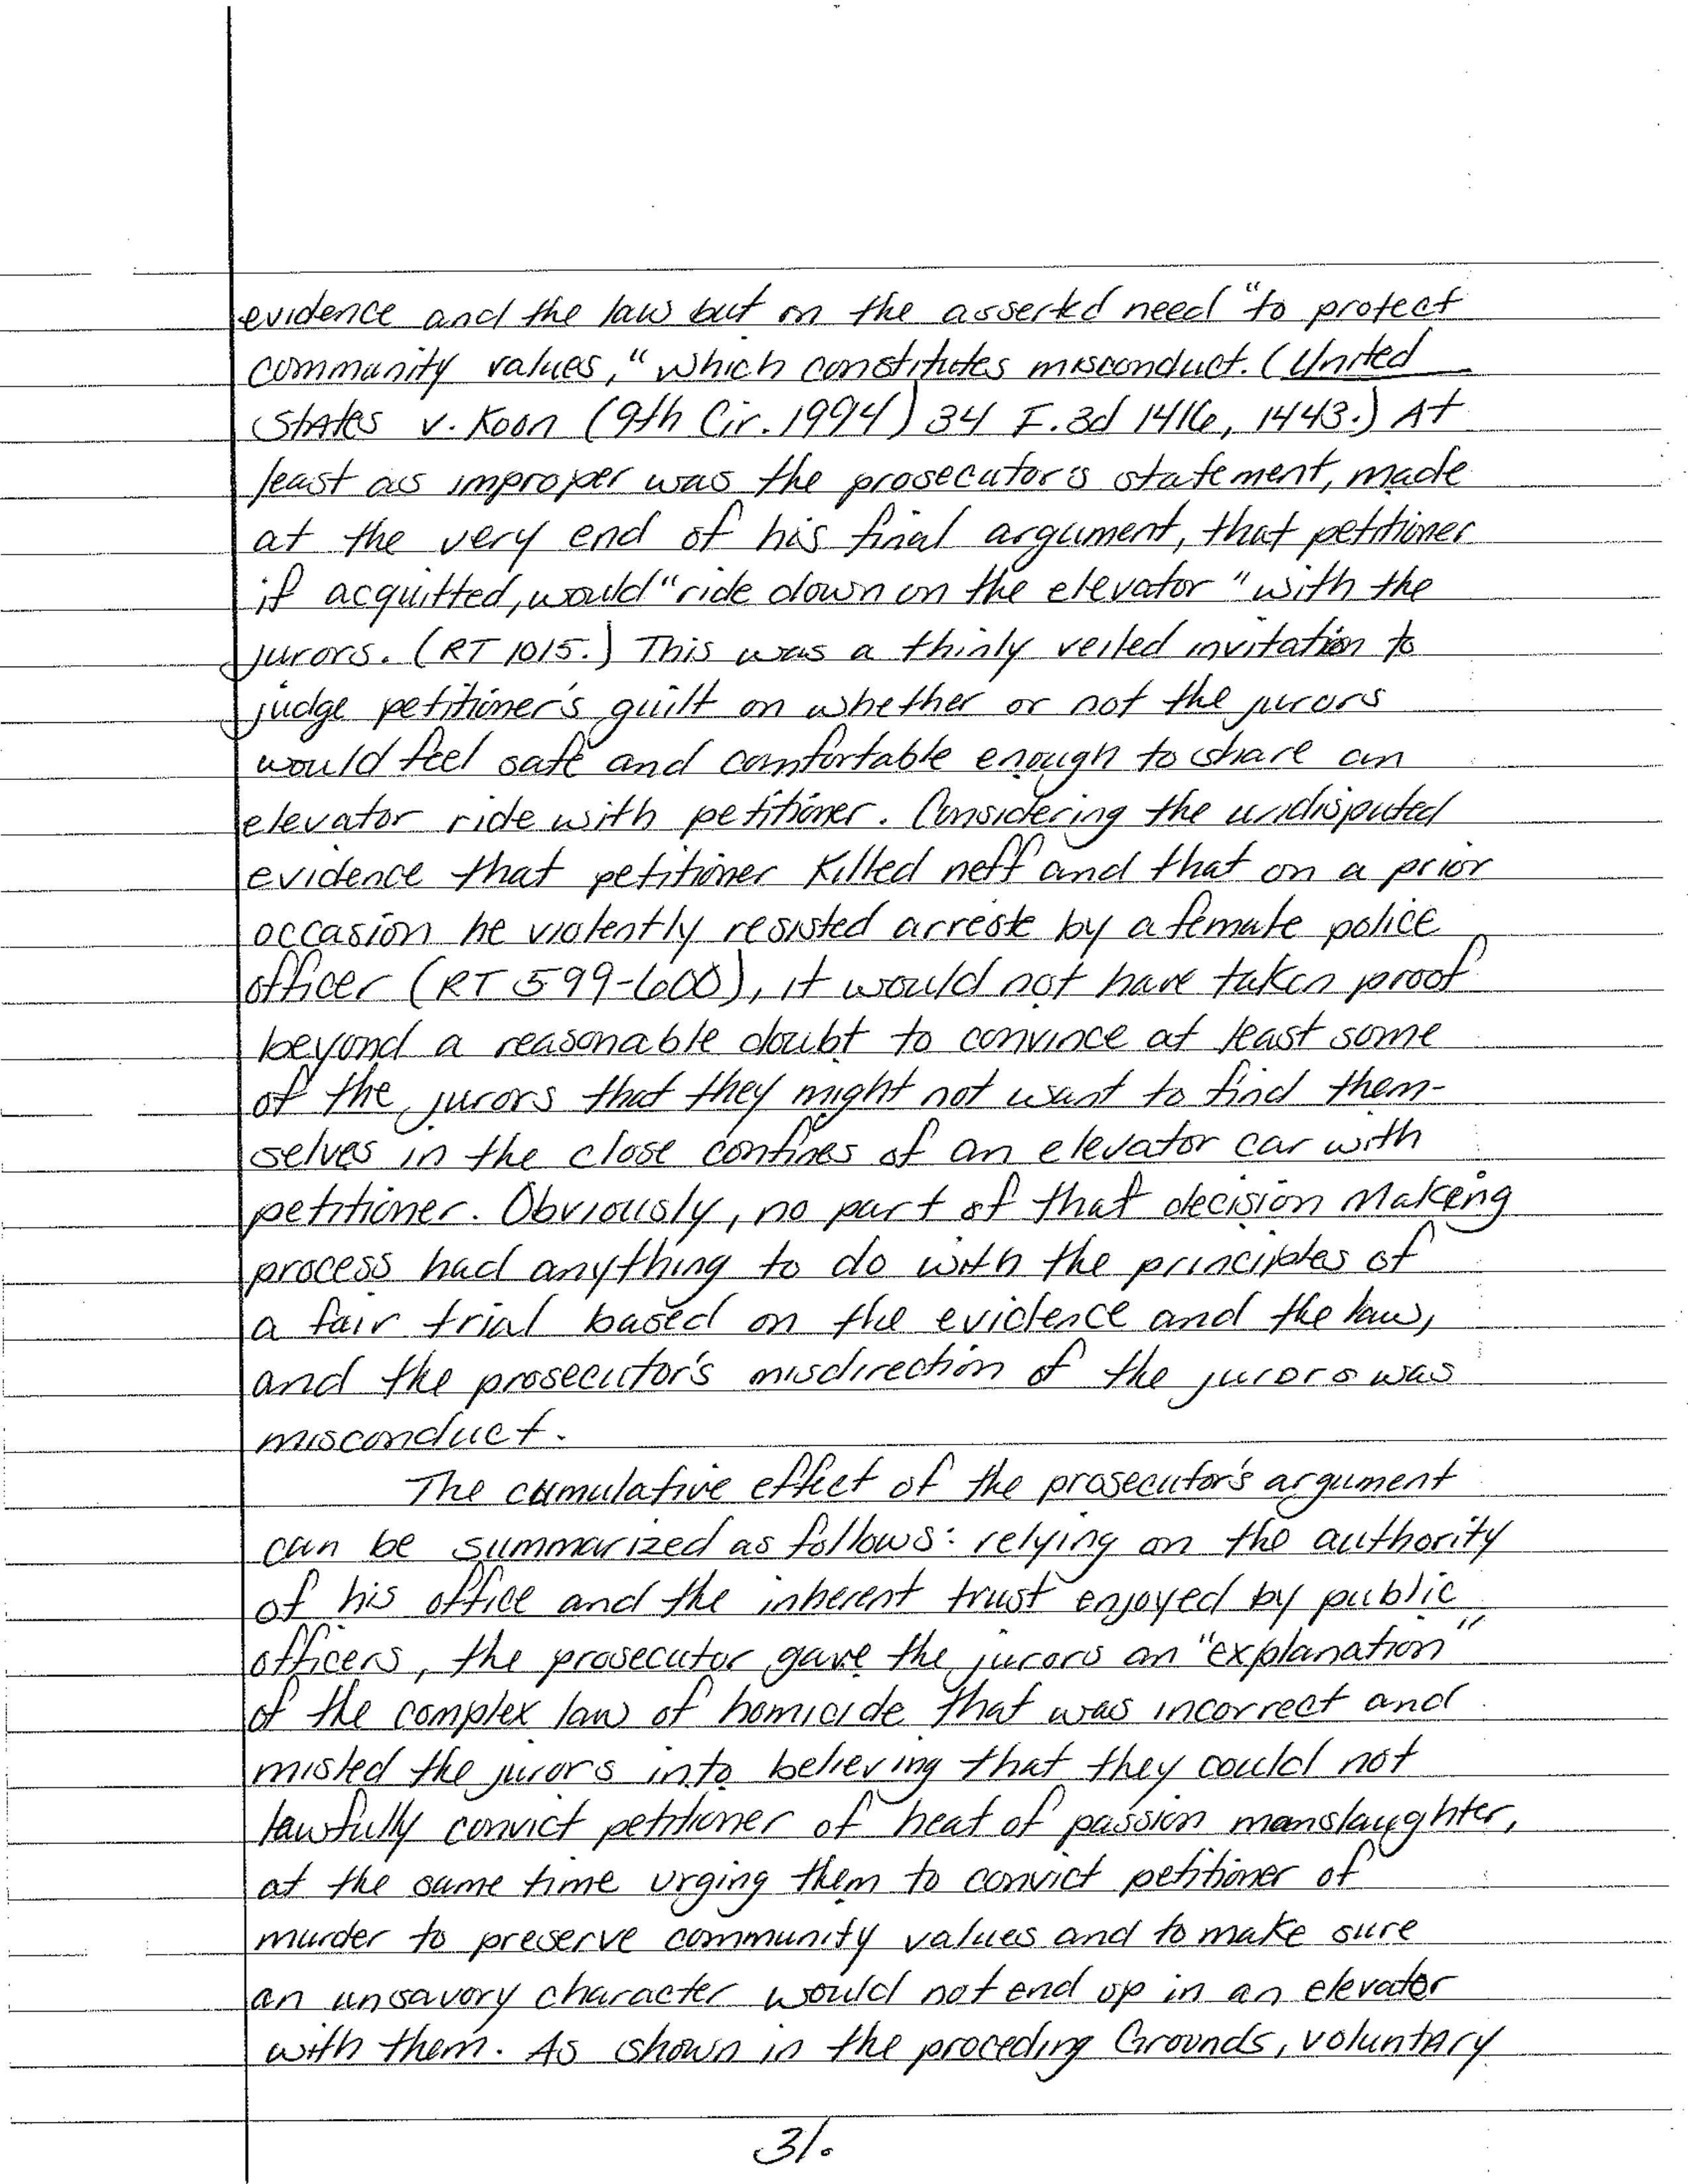 evidence and the law but on the asserted need "to protect
community values," which constitutes misconduct. (United
States v. Koon (9th Cir. 1994) 34 F.3d 1416, 1443.) At
least as improper was the prosecutor's statement, made
at the very end of his final argument, that petitioner
if acquitted, would "ride down on the elevator" with the
jurors. (RT 1015.) This was a thinly veiled invitation to
judge petitioner's guilt on whether or not the jurors
would feel safe and comfortable enough to share an
elevator ride with petitioner. Considering the undisputed
evidence that petitioner killed neff and that on a prior
occasion he violently resisted arreste by a female police
officer (RT 599-600), it would not have taken proof
beyond a reasonable doubt to convince at least some
of the jurors that they might not want to find them-
selves in the close confines of an elevator car with
petitioner. Obviously, no part of that decision Makeing
process had anything to do with the principles of
a fair trial based on the evidence and the law,
and the prosecutor's misdirection of the jurors was
misconduct.
The cumulative effect of the prosecutor's argument
can be summarized as follows: relying on the authority
of his office and the inherent trust enjoyed by public
officers, the prosecutor gave the jurors an "explanation"
of the complex law of homicide that was incorrect and
misled the jurors into believing that they could not
lawfully convict petitioner of heat of passion manslaughter,
at the same time urging them to convict petitioner of
murder to preserve community values and to make sure
an unsavory character would not end up in an elevator
with them. As shown in the proceding Grounds, voluntary
31.